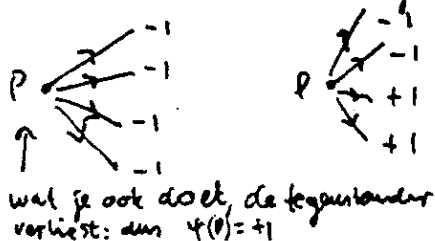 -1
-1
-1
-1
P
-1
-1
+1
+1
P
wat je ook doet, de tegenstander
verliest: dus ψ(P)=+1